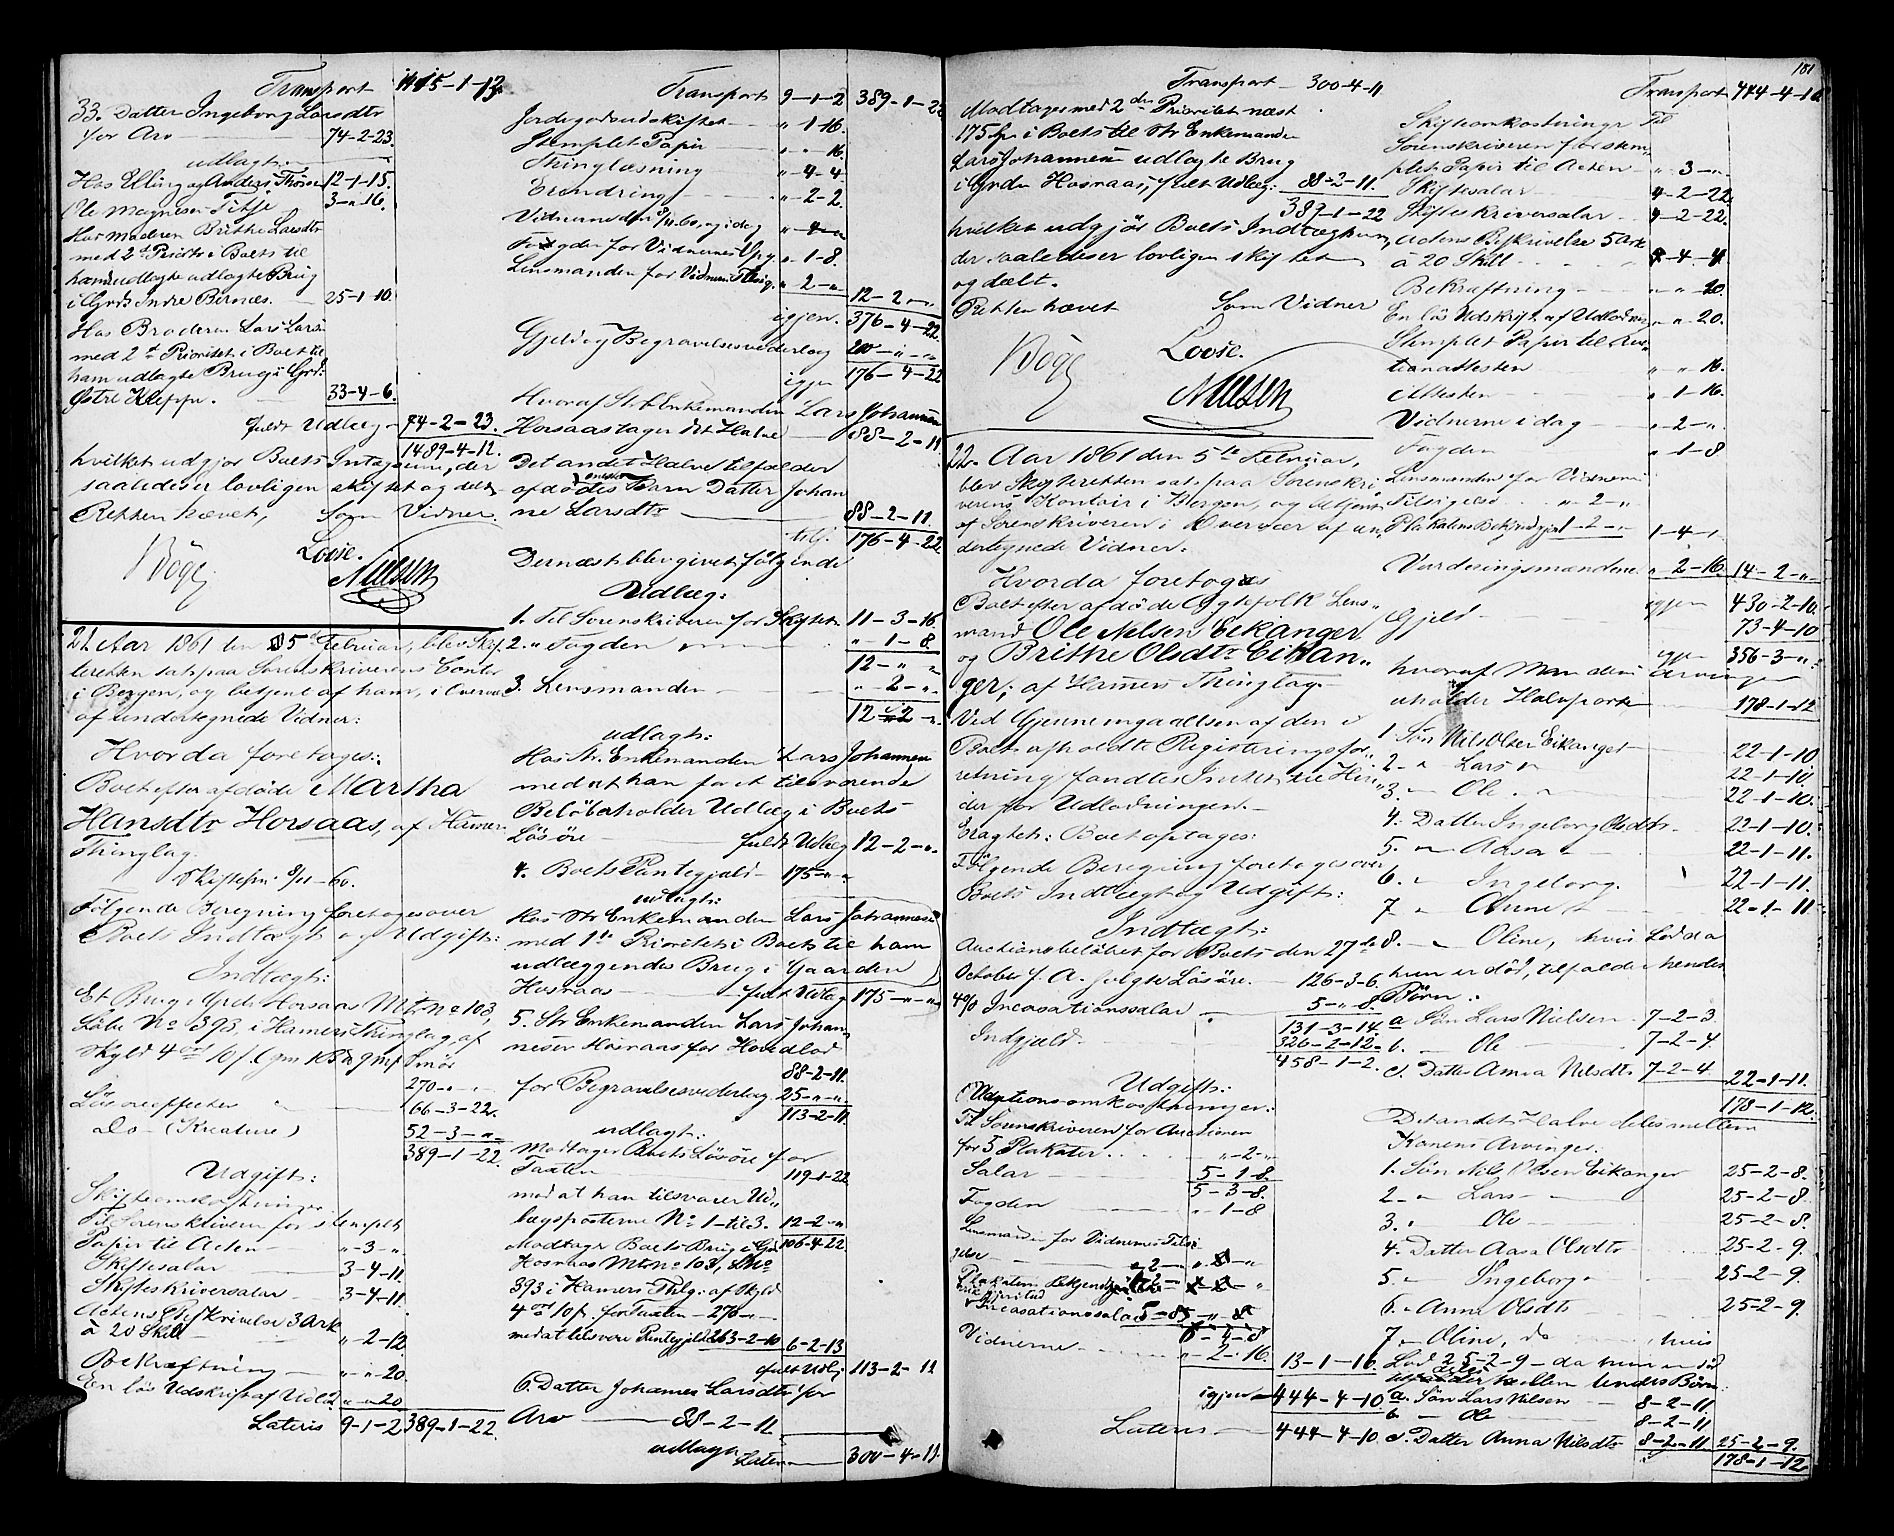 Transport 1415-1-13.
33. Datter Ingeborg Larsdtr
for Arv 74-2-23.
udlagt:
Hos Elling og Anders Thorsen 12-1-15.
Ole Magnesen Titje 3-"-16.
Hos Moderen Brithe Larsdtr
med 2d Priorit. i Boets til
hende udlagte Brug
i Grd. Indre Bernæs. 25-1-10.
Hos Broderen Lars Larsen
med 2d Prioritet i Boets til
ham udlagte Brug i Grd.
Østre Kleppe. 33-4-6.
fuldt Udlæg 74-2-23.
1489-4-12.
hvilket udgjør Boets Indtægter, der
saaledes er lovligen skiftet og delt.
Retten hævet, Som Vidner.
Bøge Loose.
Nielsen
21. Aar 1861 den 5te Februar, blev Skif-
teretten sat paa Sorenskriverens Contor
i Bergen, og betjent af ham, i Overvær
af undertegnede Vidner:
Hvorda foretoges:
Boet efter afdøde Martha
Hansdtr Horsaas, af Hamers
Thinglag.
Skiftefm. 9/11-60.
Følgende Beregning foretoges over
Boets Indtægt og Udgift:
Indtægt:
Et Brug i Grd. Horsaas Mtr No 103,
Løbe No 393, i Hamers Thinglag, af
Skyld
270-"-"
Løsøreeffecter 66-3-22.
do - (Kreature) 52-3-"-
389-1-22.
Udgift:
Skifteomkostninger
Til Sorenskriveren for stemplet
Papir til Acten "-3-".
Skiftesalar 3-4-11.
Skifteskriversalar 3-4-11.
Actens Beskrivelse 3 Ark
à 20 Skill "-2-12
Bekræftning "-"-20.
En løs Udskrift af Udlod. "-"-20
Lateris 9-1-2 389-1-22.
Transport 9-1-2 389-1-22
Jordegodsudskiftet "-1-16.
Stemplet Papir "-"-16.
Thinglæsning "-4-4
Erindring "-2-2.
Vidnerne den 9/11.60. og i dag "-4-"
Fogden for Vidnernes Opn. "-1-8.
Lensmanden for Vidners Tilsig. "-2-"
12-2-"
igjen. 376-4-22.
Gjeld og Begravelsesvederlag 200-"-"
igjen 176-4-22
Hvoraf Str Enkemanden Lars Johannesen
Horsaas tager det Halve 88-2-11
Det andet Halve tilfalder
afdødes eneste Barn Datter Johan
ne Larsdtr 88-2-11.
tilf. 176-4-22.
Dernæst blev givet følgende
Udlæg:
1. Til Sorenskriveren for Skiftet 11-3-16
2. " Fogden "-1-8.
12-"-"
3. Lensmanden "-2-"
12-2-"
udlagt:
Hos Str. Enkemanden Lars Johannesen
med at han for et tilsvarende
Beløb erholder Udlæg i Boets
Løsøre fuldt Udlæg 12-2-"
4. Boets Pantegjæld 175-"-"
udlagt:
Hos Str Enkemanden Lars Johannesen
med 1te Prioritet i Boets til ham
udlæggendes Brug i Gaarden
Horsaas fult Udlæg 175-"-"
5. Str Enkemanden Lars Johan"
nesen Horsaas for Hovedlod
88-2-11.
for Begravelsesvederlag 25-"-"
113-2-11
udlagt:
Modtager Boets Løsøre for
Taxten 119-1-22
mod at han tilsvarer Ud„
lægsposterne No 1-til 3. 12-2-"
106-4-22.
Modtager Boets Brug i Grd
Horsaas Mtr No 103, L No
393 i Hamers Thlg. af Skyld
4 ort 10 ß. for Taxten 270-"-
med at tilsvare Pantegjeld 263-2-10 6-2-13
fult Udlg 113-2-11
6. Datter Johanne Larsdtr for
Arv 88-2-11
udlagt:
Lateris 300-4-11.
181
Transport 300-4-11
Modtages med 2den Prioritet næst
175 Spd. i Boets til Str Enkemanden
Lars Johannesen udlagte Brug
i Grden Horsaas, fult Udlæg. 88-2-11.
389-1-22
hvilket udgjør Boets Indtægter,
der saaledes er lovligen skiftet
og delt.
Retten hævet Som Vidner
Bøge Loose.
Nielsen
22. Aar 1861 den 5te Februar,
blev Skifteretten sat paa Sorenskri
verens Kontoir i Bergen, og betjent
af Sorenskriveren i Overvær af un„
dertegnede Vidner:
Hvorda foretoges
Boet efter afdøde Ægtefolk Lens„
mand Ole Nilsen Eikanger
og Brithe Olsdtr Eikan„
ger, af Hamers Thinglag.
Ved Gjennemgaaelsen af den i
Boet afholdte Registeringsfor„
retning fandtes Intet til Hin„
der for Udlodningen.
Eragtet: Boet optages:
Følgende Beregning foretoges over
Boets Indtægt og Udgift:
Indtægt:
Auctionsbeløbet for Boets den 27de
October f. A. solgte Løsøre. 126-3-6.
4% Incasationssalar 5-"-8.
131-3-14.
Indgjæld. 326-2-12.
458-1-2.
Udgift:
Auctionsomkostninger:
Til Sorenskriveren for Auctionen
for 3 Plakater "-2-"
Salar 5-1-8.
5-3-8.
Fogden "-1-8
Lensmanden for Vidnernes Tilsi
gelse "-2-"
Incasationssalar 5-"-8
6-4-8
Vidnerne "-2-16. 13-1-16.
igjen 444-4-10
Lateris 444-4-10.
Transport 444-4-10
Skifteomkostninger Til
Sorenskriveren for stem„
plet Papir til Acten "-3-".
Skiftesalar 4-2-22.
Skifteskriversalar 4-2-22.
Actens Beskrivelse 5 Ark
à 20 Skill "-4-4.
Bekræftning "-"-20.
En løs Udskrift af Udlodn. "-"-20.
Stemplet Papir til Auc„
tionattesten "-"-16.
Attesten "-1-16.
Vidnerne i dag "-2-".
Fogden "-1-8
Lensmanden for Vidnernes
Tilsigelse "-2-"
Plakatens Bekjendtgjør 1-2-" 1-4-"
Vurderingsmændene "-2-16. 14-2-"-
igjen 430-2-10.
Gjeld 73-4-10
igjen 356-3-"
hvoraf Mandens Arvinger
erholder Halvparten 178-1-12
1. Søn Nils Olsen Eikanger 22-1-10
2. " Lars " 22-1-10
3. " Ole " 22-1-10.
4. Datter Ingeborg Olsdtr. 22-1-10.
5. " Aasa " 22-1-11.
6. " Ingeborg. 22-1-11.
7. " Anna 22-1-11
8. " Oline, hvis Lod da
hun er død, tilfalder hendes
Børn.
a Søn Lars Nielsen 7-2-3.
b. " Ole 7-2-4.
c. Datter Anna Nilsdtr 7-2-4 22-1-11.
178-1-12.
Det andet Halve deles mellem
Konens Arvinger:
1. Søn Nils Olsen Eikanger 25-2-8.
2. " Lars 25-2-8
3. " Ole 25-2-8.
4. Datter Aasa Olsdtr 25-2-9.
5. " Ingeborg 25-2-9.
6. " Anna Olsdtr 25-2-9.
7. " Oline, do hvis
Lod 25-2-9 - da hun er død
deles mellem hendes Børn:
a. Søn Lars Nilsen 8-2-11.
b " Ole 8-2-11
c. Datter Anna Nilsdtr 8-2-11 25-2-9.
178-1-12